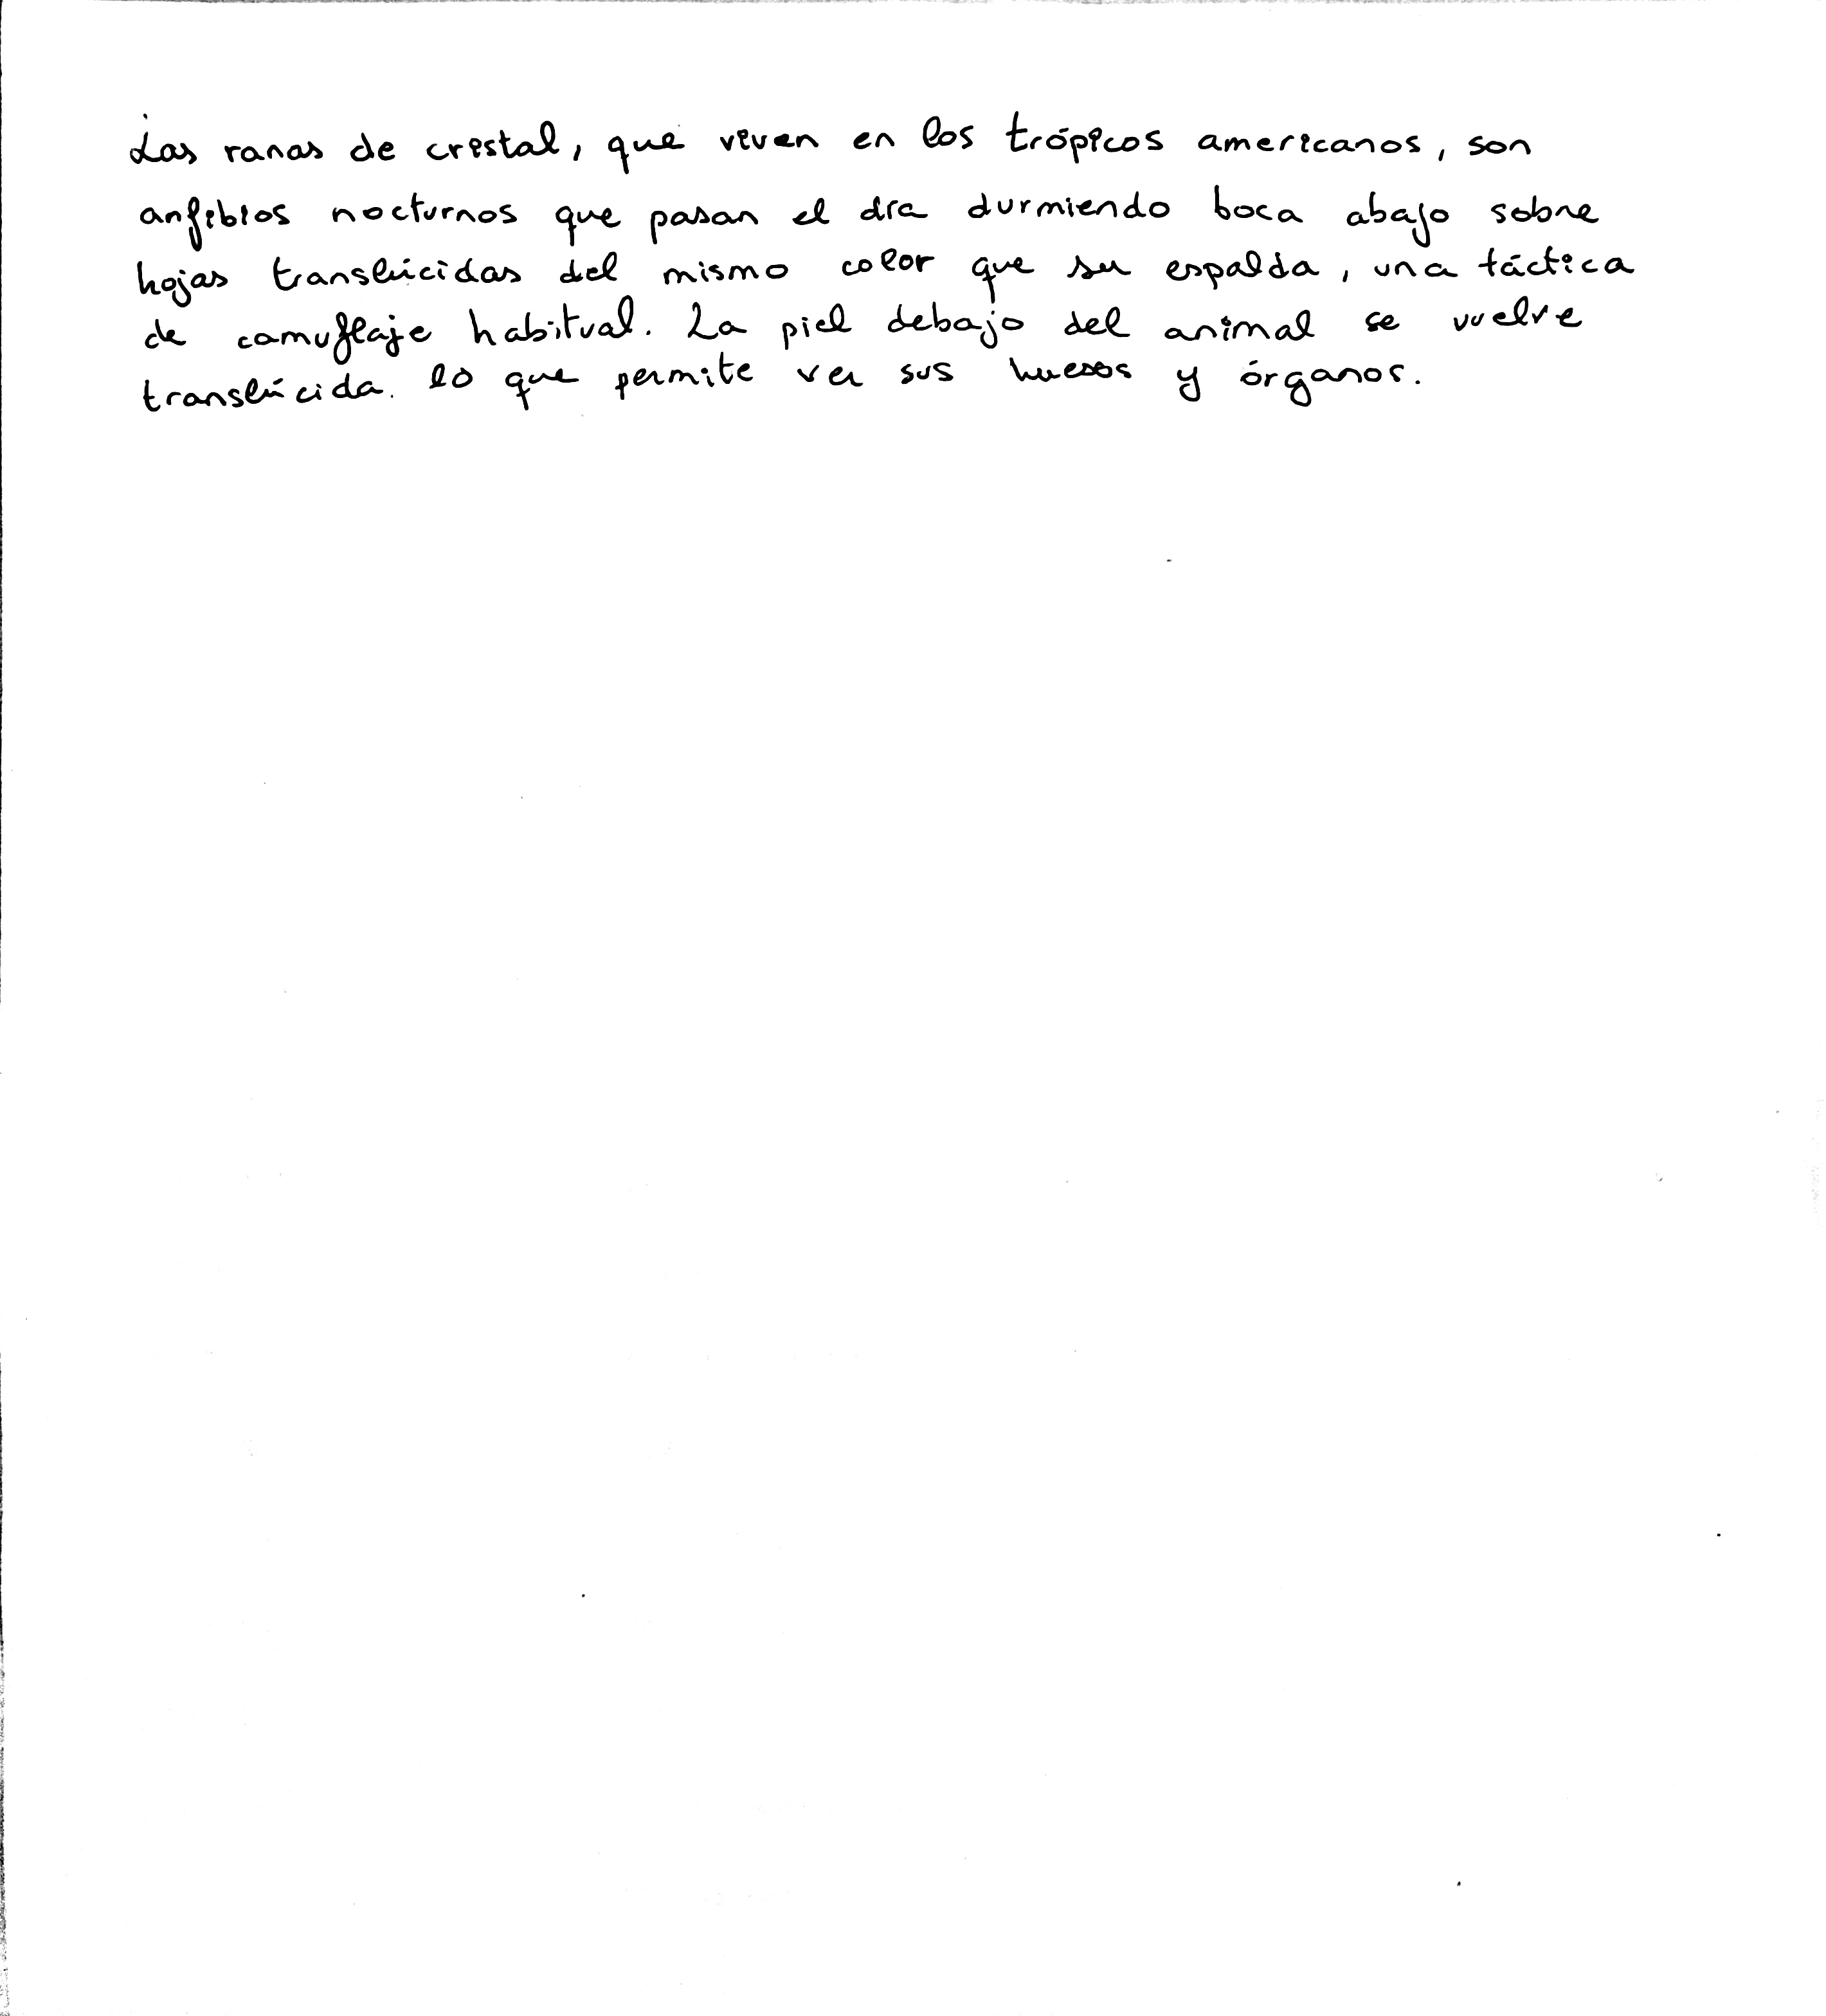 Las ranas de cristal, que viven en los trópicos americanos, son
anfibios nocturnos que pasan el día durmiendo boca abajo sobre
hojas translúcidas del mismo color que su espalda, una táctica
de camuflaje habitual. La piel debajo del animal se vuelve
translúcida. lo que permite ver sus huesos y órganos.